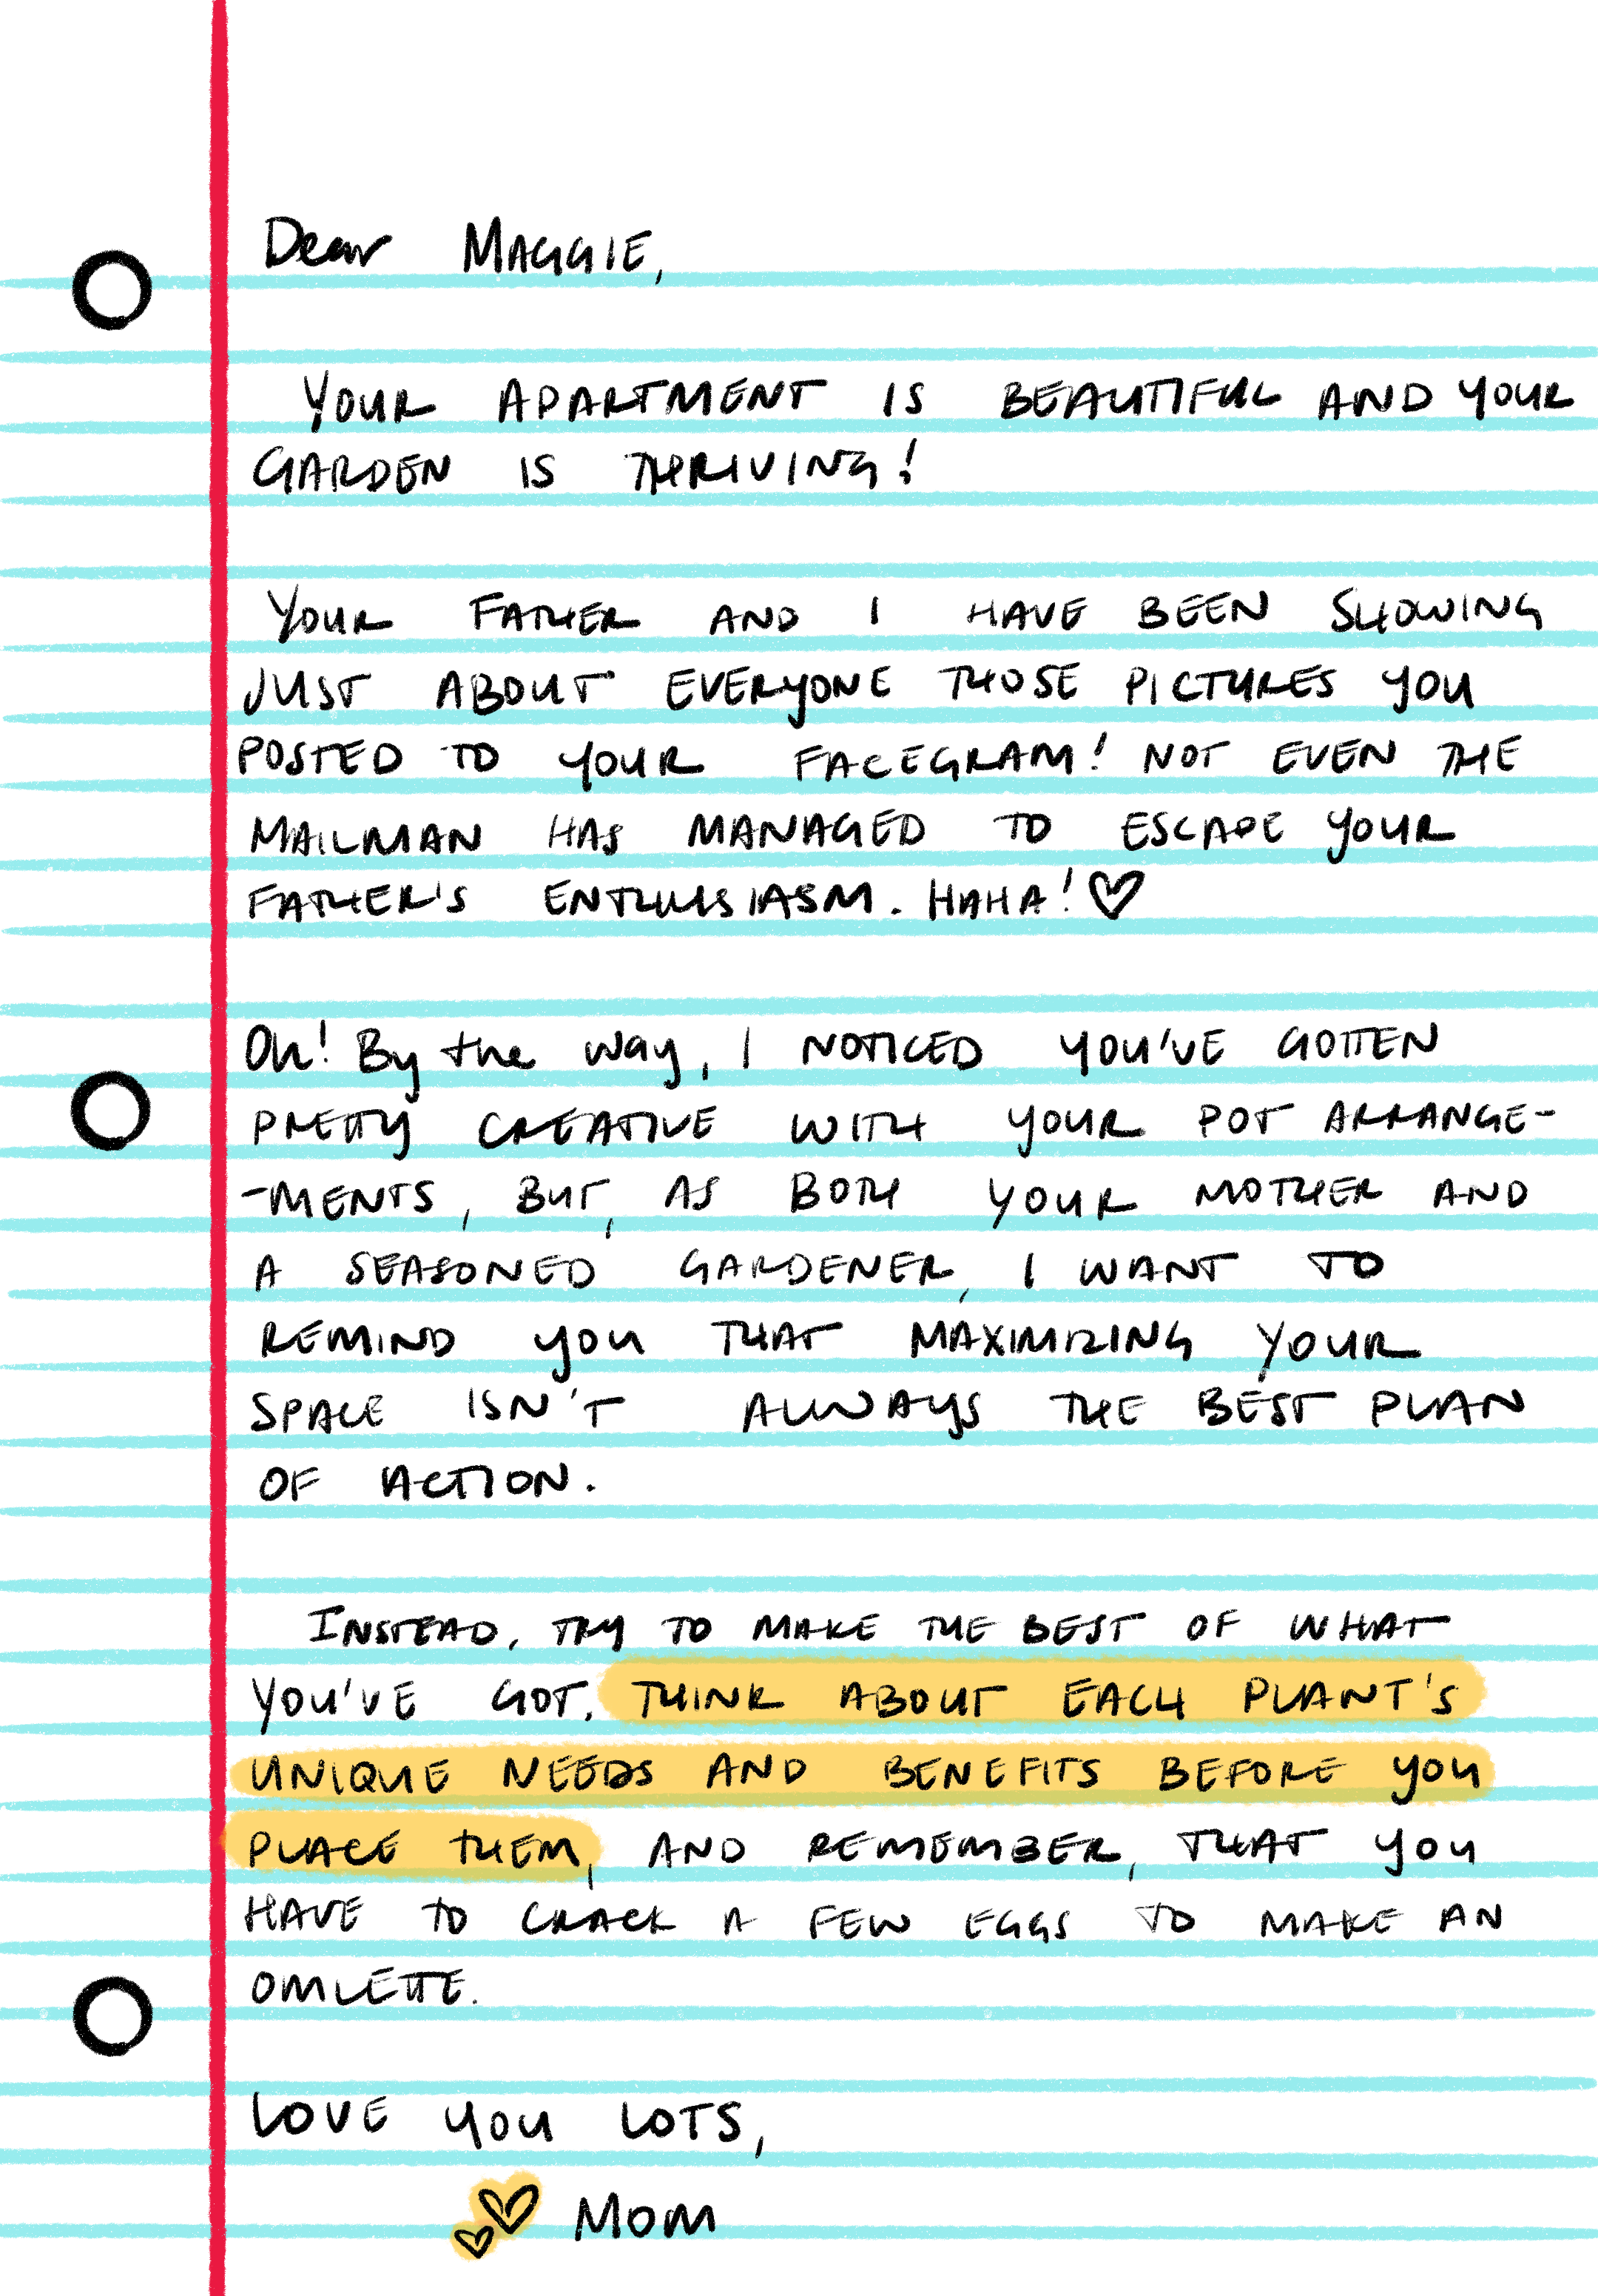 Dear MAGGIE,
YOUR APARTMENT IS BEAUTIFUL AND YOUR
GARDEN IS THRIVING!
YOUR FATHER AND I HAVE BEEN SHOWING
JUST ABOUT EVERYONE THOSE PICTURES YOU
POSTED TO YOUR FACEGRAM! NOT EVEN THE
MAILMAN HAS MANAGED TO ESCAPE YOUR
FATHER'S ENTHUSIASM. HAHA!
Oh! By the way, I NOTICED YOU'VE GOTTEN
PRETTY CREATIVE WITH YOUR POT ARRANGE-
-MENTS, BUT, AS BOTH YOUR MOTHER AND
A SEASONED GARDENER, I WANT TO
REMIND YOU THAT MAXIMIZING YOUR
SPACE ISN'T ALWAYS THE BEST PLAN
OF ACTION.
INSTEAD, TRY TO MAKE THE BEST OF WHAT
YOU'VE GOT. THINK ABOUT EACH PLANT'S
UNIQUE NEEDS AND BENEFITS BEFORE YOU
PLACE THEM, AND REMEMBER, THAT YOU
HAVE TO CRACK A FEW EGGS TO MAKE AN
OMLETTE.
LOVE YOU LOTS,
MOM